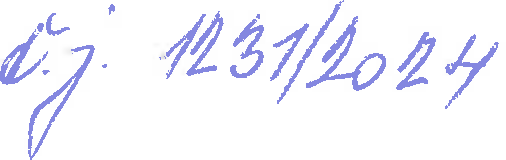 č.j. 1231/2024